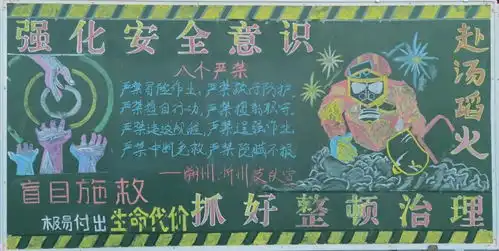 强化安全意识
八个严禁
严禁冒险作业，严禁缺乏防护
严禁擅自行动，严禁擅离职守
严禁违边纪程，严禁违强作业
严禁中断急救，严禁隐瞒不报
赴汤蹈火
盲目施救
极易付出生命代价
抓好整顿治理